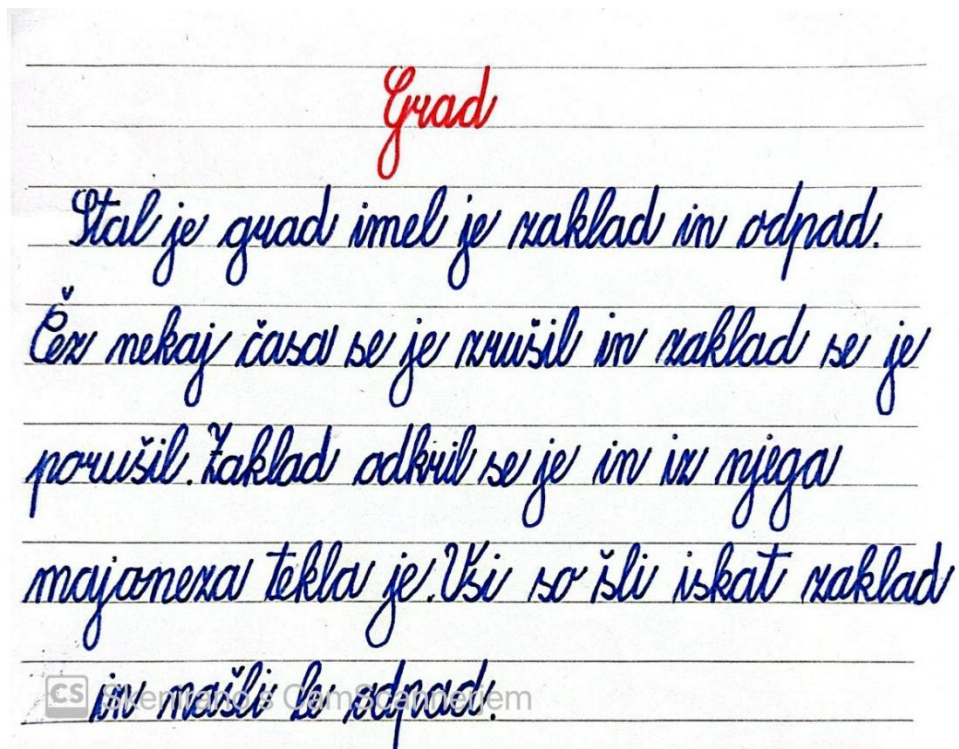 Grad
Stal je grad imel je zaklad in odpad.
Čez nekaj časa se je zrušil in zaklad se je
porušil. Zaklad odkril se je in iz njega
majoneza tekla je. Vsi so šli iskat zaklad
in našli le odpad.
CS Skenirano s CamScannerjem